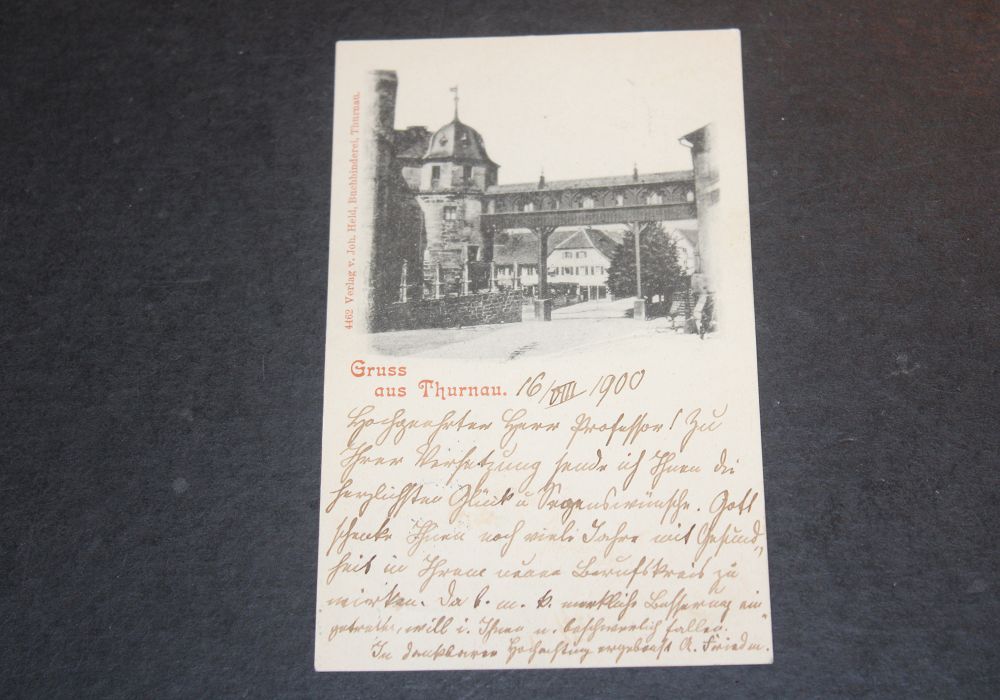 4462 Verlag v. Joh. Held, Buchbinderei, Thurnau.
Gruss
aus Thurnau. 16/VIII 1900
Hochgeehrter Herr Professor! Zu
Ihrer Versetzung sende ich Ihnen die
herzlichsten Glück u Segenswünsche. Gott
schenke Ihnen noch viele Jahre mit Gesund„
heit in Ihrem neuen Berufskreis zu
wirken. Da b. m. merkliche Besserung ein„
getreten, will i. Ihnen n. beschwerlich fallen.
In dankbarer Hochachtung ergebenst A. Friedm.